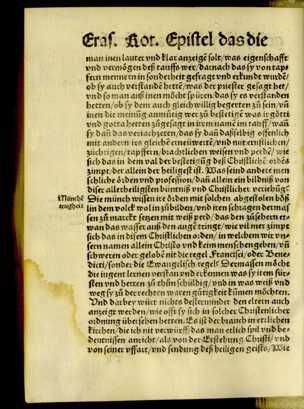 Eras. Rot. Epistel das die
man inen lauter vnd klar anzeige solt, was eigenschafft
vnd vermögen deß tauffs wer, darnach das sy von tapf
fern mennern in sonderheit gefragt vnd erkundt wurdē,
ob sy auch verstandē hette, was der priester gesagt het,
vnd so man auß inen möcht spüren, das sy es verstanden
hetten, ob sy dem auch gleich willig begerten zů sein, vnd
inen die meinūg anmůtig wer zů bestetigē was ir götti
vnd gotta hetten zů gesagt in irem namē im tauff, wañ
sy dañ das veriachzeten, das sy dañ daßselbig offenlich
mit andern irs gleichē erneüwertē, vnd mit erntlichen,
züchtigen, tapffern, dachtlichen weisen vnd perdē, wie
sich das in dem val der bestetigūg deß Christlichē ordēs
zimpt, der allein der heiligest ist. Was seind andere men
schliche ördē vnd professiōn, dañ allein ein bildnüß von
diser allerheiligsten büntnüß vnd Christlicher verieihūg?
Münche
Die münch wissen ire örden mit solcher
lin dem volck wol in zůbilden, vnd iren schragen dermas
sen zů marckt setzen mit weiß perd, das den zůsehern
van das wasser auß den augē tringt, wie vil mer zimpt
sich das in disem Christlichen orden, in welchem wir vn
sern namen allein Christo vnd kein menschen geben, vñ
schweren oder geloben nit die regel Francisci, oder Bene
dicti, sonder die Euangelisch regel? Dermassen möchte
die iugent lernen verstan vnd erkennen was sy irem für
sten vnd herren zů thůn schuldig, vnd in was weiß vnd
weg sy zů der rechten waren gütigkeit kūmen möchten.
Vnd darbey würt nichts destermīnder den eltern auch
anzeigt werden, wie offt sy sich in solcher Christenlicher
ordnung übersehen hetten. Es ist der brauch in etlichen
kirchen, die ich nit verwürff, das man etlich spil vnd be
deutnissen anricht, als von der Erstehung Christi, vnd
von seiner vffart, vnd sendung deß heiligen geists, Wie